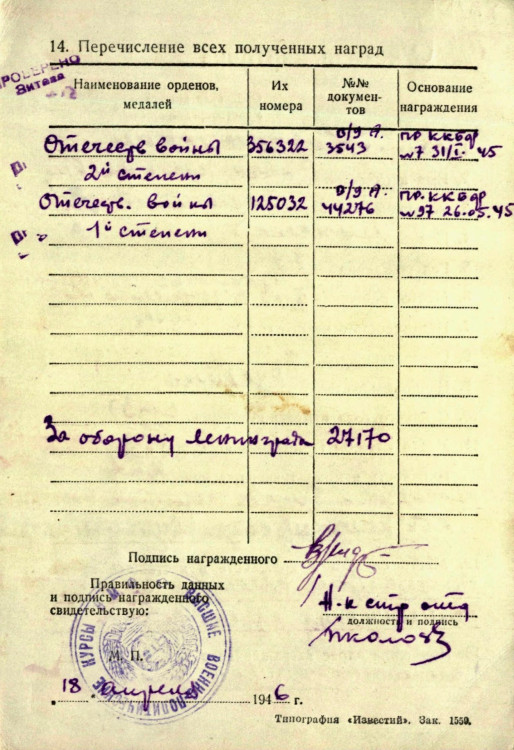 14. Перечисление всех полученных наград
ПРОВЕРЕНО
Наименование орденов, медалей
Их номера
№№ документов
Основание награждения
Отечеств войны 356322 о/у А. 3543 пр. ККБФ №7 31/I-45
2й степени
Отечеств. войны 125032 44276 пр. ККБФ №97 26.05.45
1й степени
За оборону Ленинграда 27170
Подпись награжденного
Правильность данных
и подпись награжденного
свидетельствую:
Н-к стр отд
должность и подпись
М. П.
ВЫСШИЕ ВОЕННО-ПОЛИТИЧЕСКИЕ КУРСЫ
18 апреля 1946 г.
Типография «Известий». Зак. 1559.